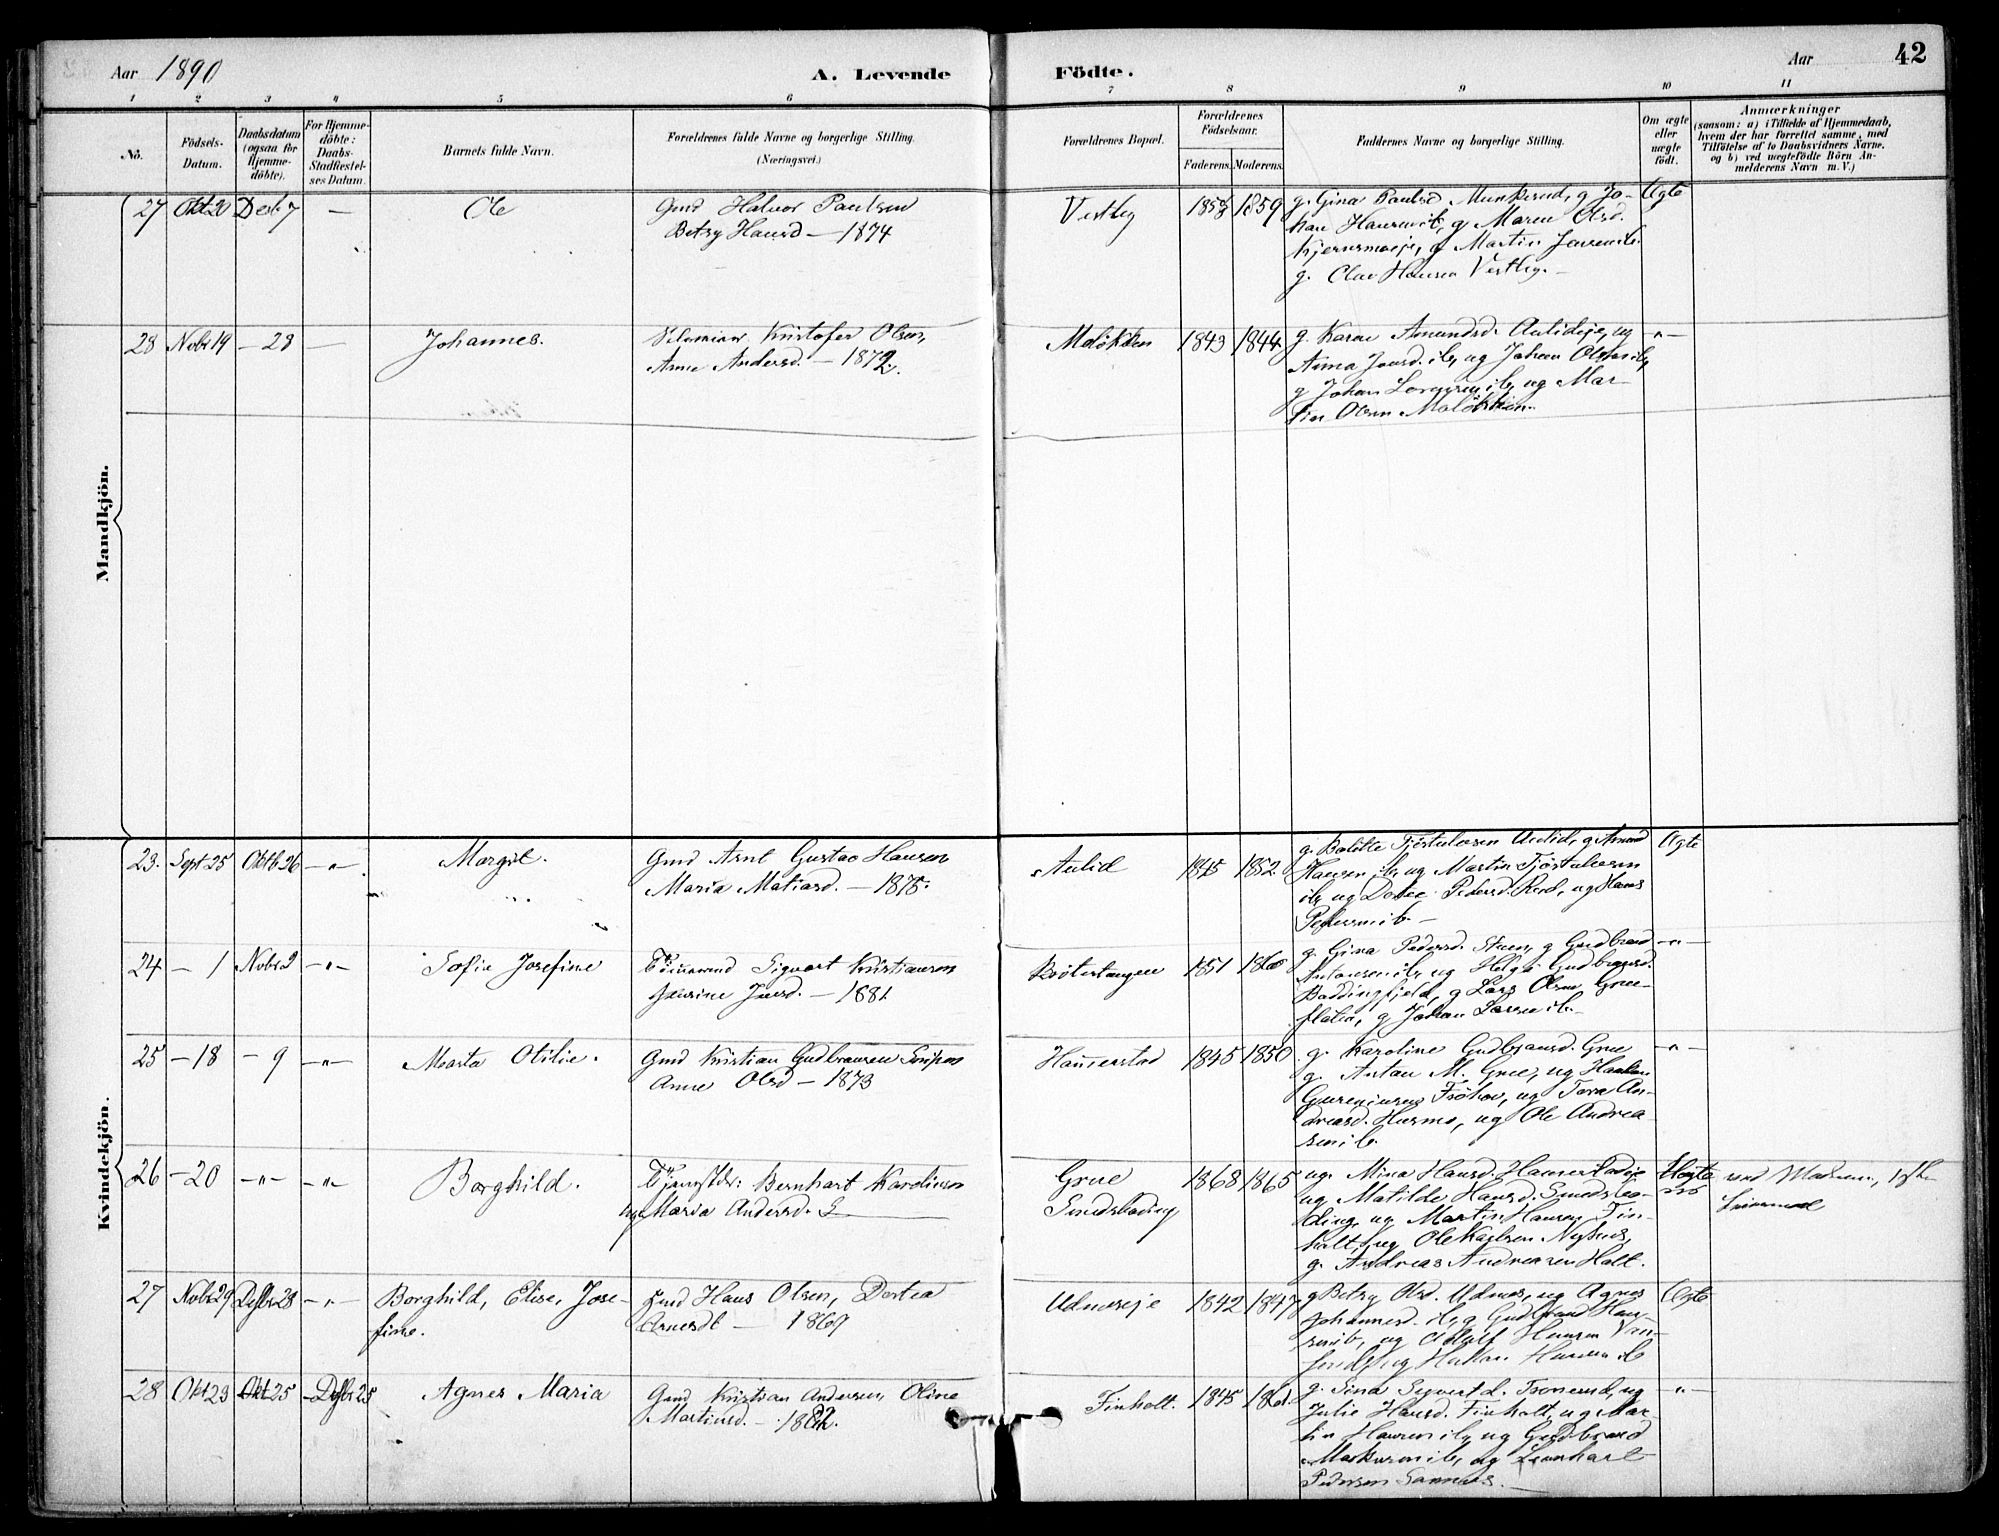 Aar 1890
A. Levende Födte.
Aar
42
1 2 3 4 5 6 7 8 9 10 11
Nô.
Födsels-Datum.
Daabsdatum (ogsaa for Hjemme-döbte).
For Hjemme-döbte: Daabs-Stadfæstel-ses Datum.
Barnets fulde Navn.
Forældrenes fulde Navne og borgerlige Stilling.
(Næringsvei.)
Forældrenes Bopæl.
Forældrenes Födselsaar.
Faderens. Moderens.
Faddernes Navne og borgerlige Stilling.
Om ægte eller uægte födt.
Anmærkninger
(saasom: a) i Tilfælde af Hjemmedaab, hvem der har forrettet samme, med Tilföielse af to Daabsvidners Navne, og b) ved uægtefödte Börn An-melderens Navn m. V.)
Mandkjön.
27 Okt 20 Decb 7 — Ole
Gmd Halvor Paulsen
Betsy Hansd — 1874
Vestby 1858 1859
g. Gina Paulsd Munkerud, g Jo-
han Hansen ib, g Maren Olsd.
g Martin Jensen ib.
g. Olav Hansen Vestby. —
Ægte
28 Nvbr 19 — 23 — Johannes.
Kristofer Olsen,
Anne Andersd. — 1872.
1843 1844
g. Karen Amundsd. Aulideje, ug
Anna Jensd. ib, ug Johan Olsen ib,
g Johan Larensen ib, ug Mar-
tin Olsen
—"—
Kvindekjön.
23. Sept 25 Oktb 26 —"— Margit.
Gmd Arnt Gustav Hansen
Maria Matiasd. — 1875.
Aulid 1845 1852.
g. Bolette Tjöstulvsen Aulid, g. Amund
Hansen ib, ug Martin Tjöstulvsen
ib, ug Pedersd. ug Hans
Pedersen ib —
Ægte
24 — 1 Nvbr 2 —"— Sofie Josefine
Sigvart Kristiansen
Jensd. — 1881
1851 1860
g. Gina Pedersd. Stuen, g Gudbrand
Antonsen ib, ug Helga Gudbrandsd.
g Lars Olsen Grue-
g Johan Larsen ib.
—"—
25 — 18 — 9 —"— Marta Otilie.
Gmd Kristian Gudbransen
Anne Olsd — 1873
Haunerstad 1845 1850
g. Karoline Gudbransd. Grue
g. Anton M. Grue, ug
Fröhov, ug Tora An-
dreasd. Husmo, ug Ole Andrea-
sen ib.
—"—
26 — 20 —"— —"— Borghild.
Bernhart Karelius
ug Maria Andersd.
Grue
1868 1865
ug. Mina Hansd. Haunerstadeje
ug Matilde Hansd. Smedsta-
ding, ug Martin Hansen Fin-
holt, ug Ole Karlsen Nyhus,
g. Andreas Andreasen Holt.
Uægte
ved Moderen,
27 Nvbr 29 Decbr 28 —"— Borghild, Elise, Jose-
fine.
Gmd Hans Olsen, Dortea
— 1869
Udneseje 1842 1847
g Betsy Olsd. Udnes, ug Agnes
Johannesd. ib, g Gudbrand Han-
sen ib, ug Adolf Hansen
ug Hakon Hansen ib
Ægte
28 Okt 23 Okt 25 — Decbr 25 Agnes Maria
Gmd Kristian Andersen, Oline
Martinsd. — 1882.
Finholt. 1845 1861.
g. Sina Syvertd. ug
Julie Hansd. Finholt, ug Mar-
tin Hansen ib, ug Gudbrand
Markusen ib, ug Leonhart
Pedersen
—"—